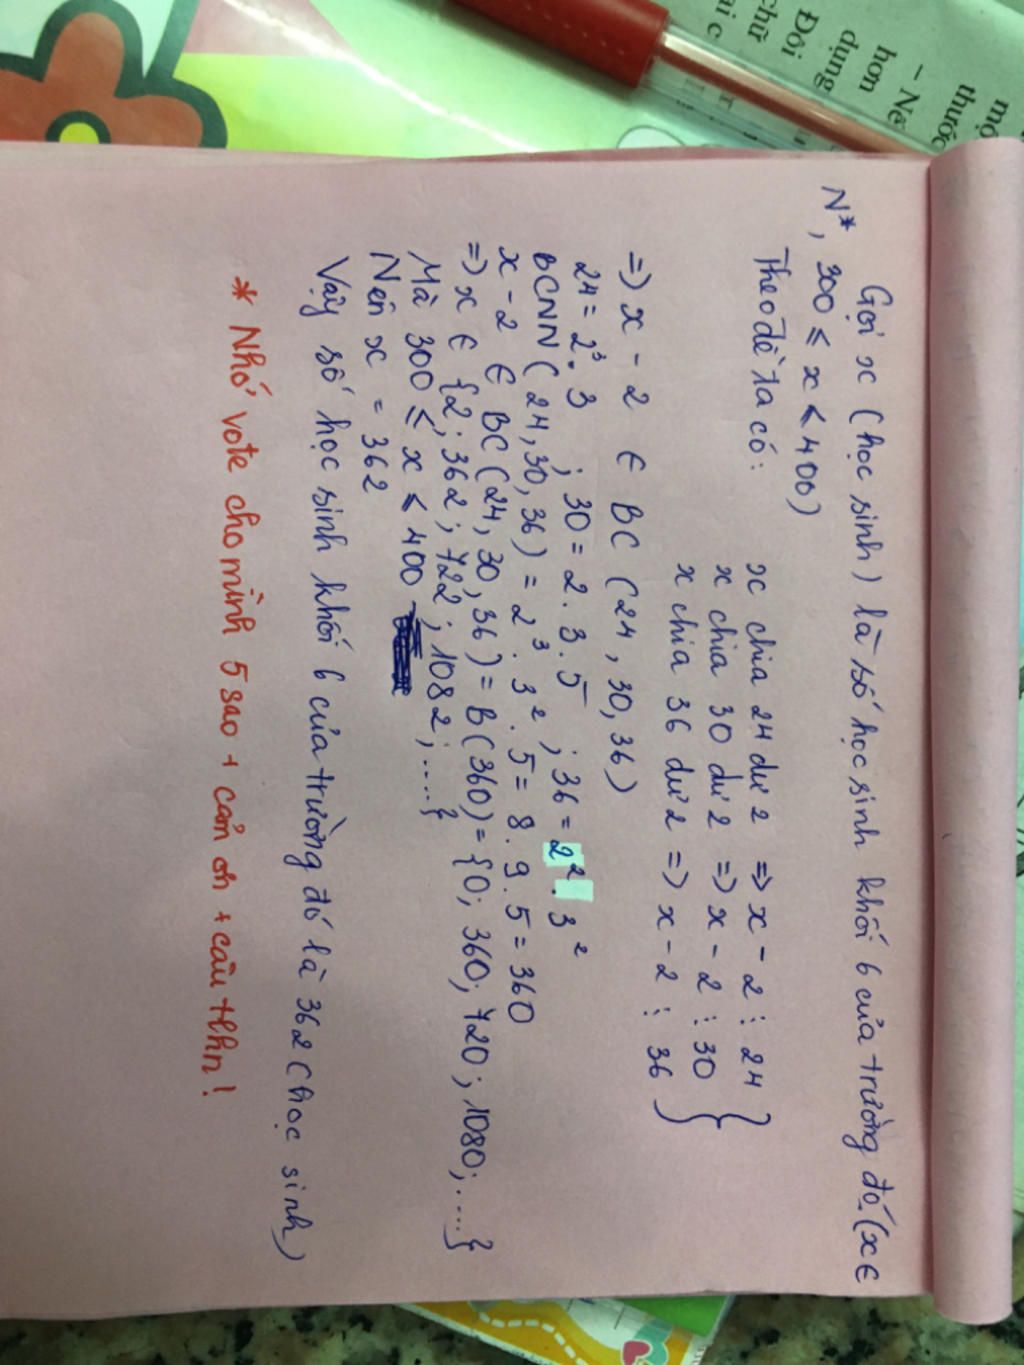 mộ
thước
– Nế
hơn
dụng
Đôi
chữ
ai c
Gọi x (học sinh) là số học sinh khối 6 của trường đó (x ∈
N*, 300 ≤ x ≤ 400)
Theo đề ta có:
x chia 24 dư 2 => x - 2 ⋮ 24
x chia 30 dư 2 => x - 2 ⋮ 30
x chia 36 dư 2 => x - 2 ⋮ 36 }
=> x - 2 ∈ BC (24, 30, 36)
24 = 2³. 3 ; 30 = 2. 3. 5 ; 36 = 2². 3²
BCNN (24, 30, 36) = 2³. 3². 5 = 8. 9. 5 = 360
x - 2 ∈ BC (24, 30, 36) = B(360) = {0; 360; 720; 1080; ....}
=> x ∈ {2; 362; 722; 1082; ....}
Mà 300 ≤ x ≤ 400
Nên x = 362
Vậy số học sinh khối 6 của trường đó là 362 (học sinh)
* Nhớ vote cho mình 5 sao + cảm ơn + câu tlhn!